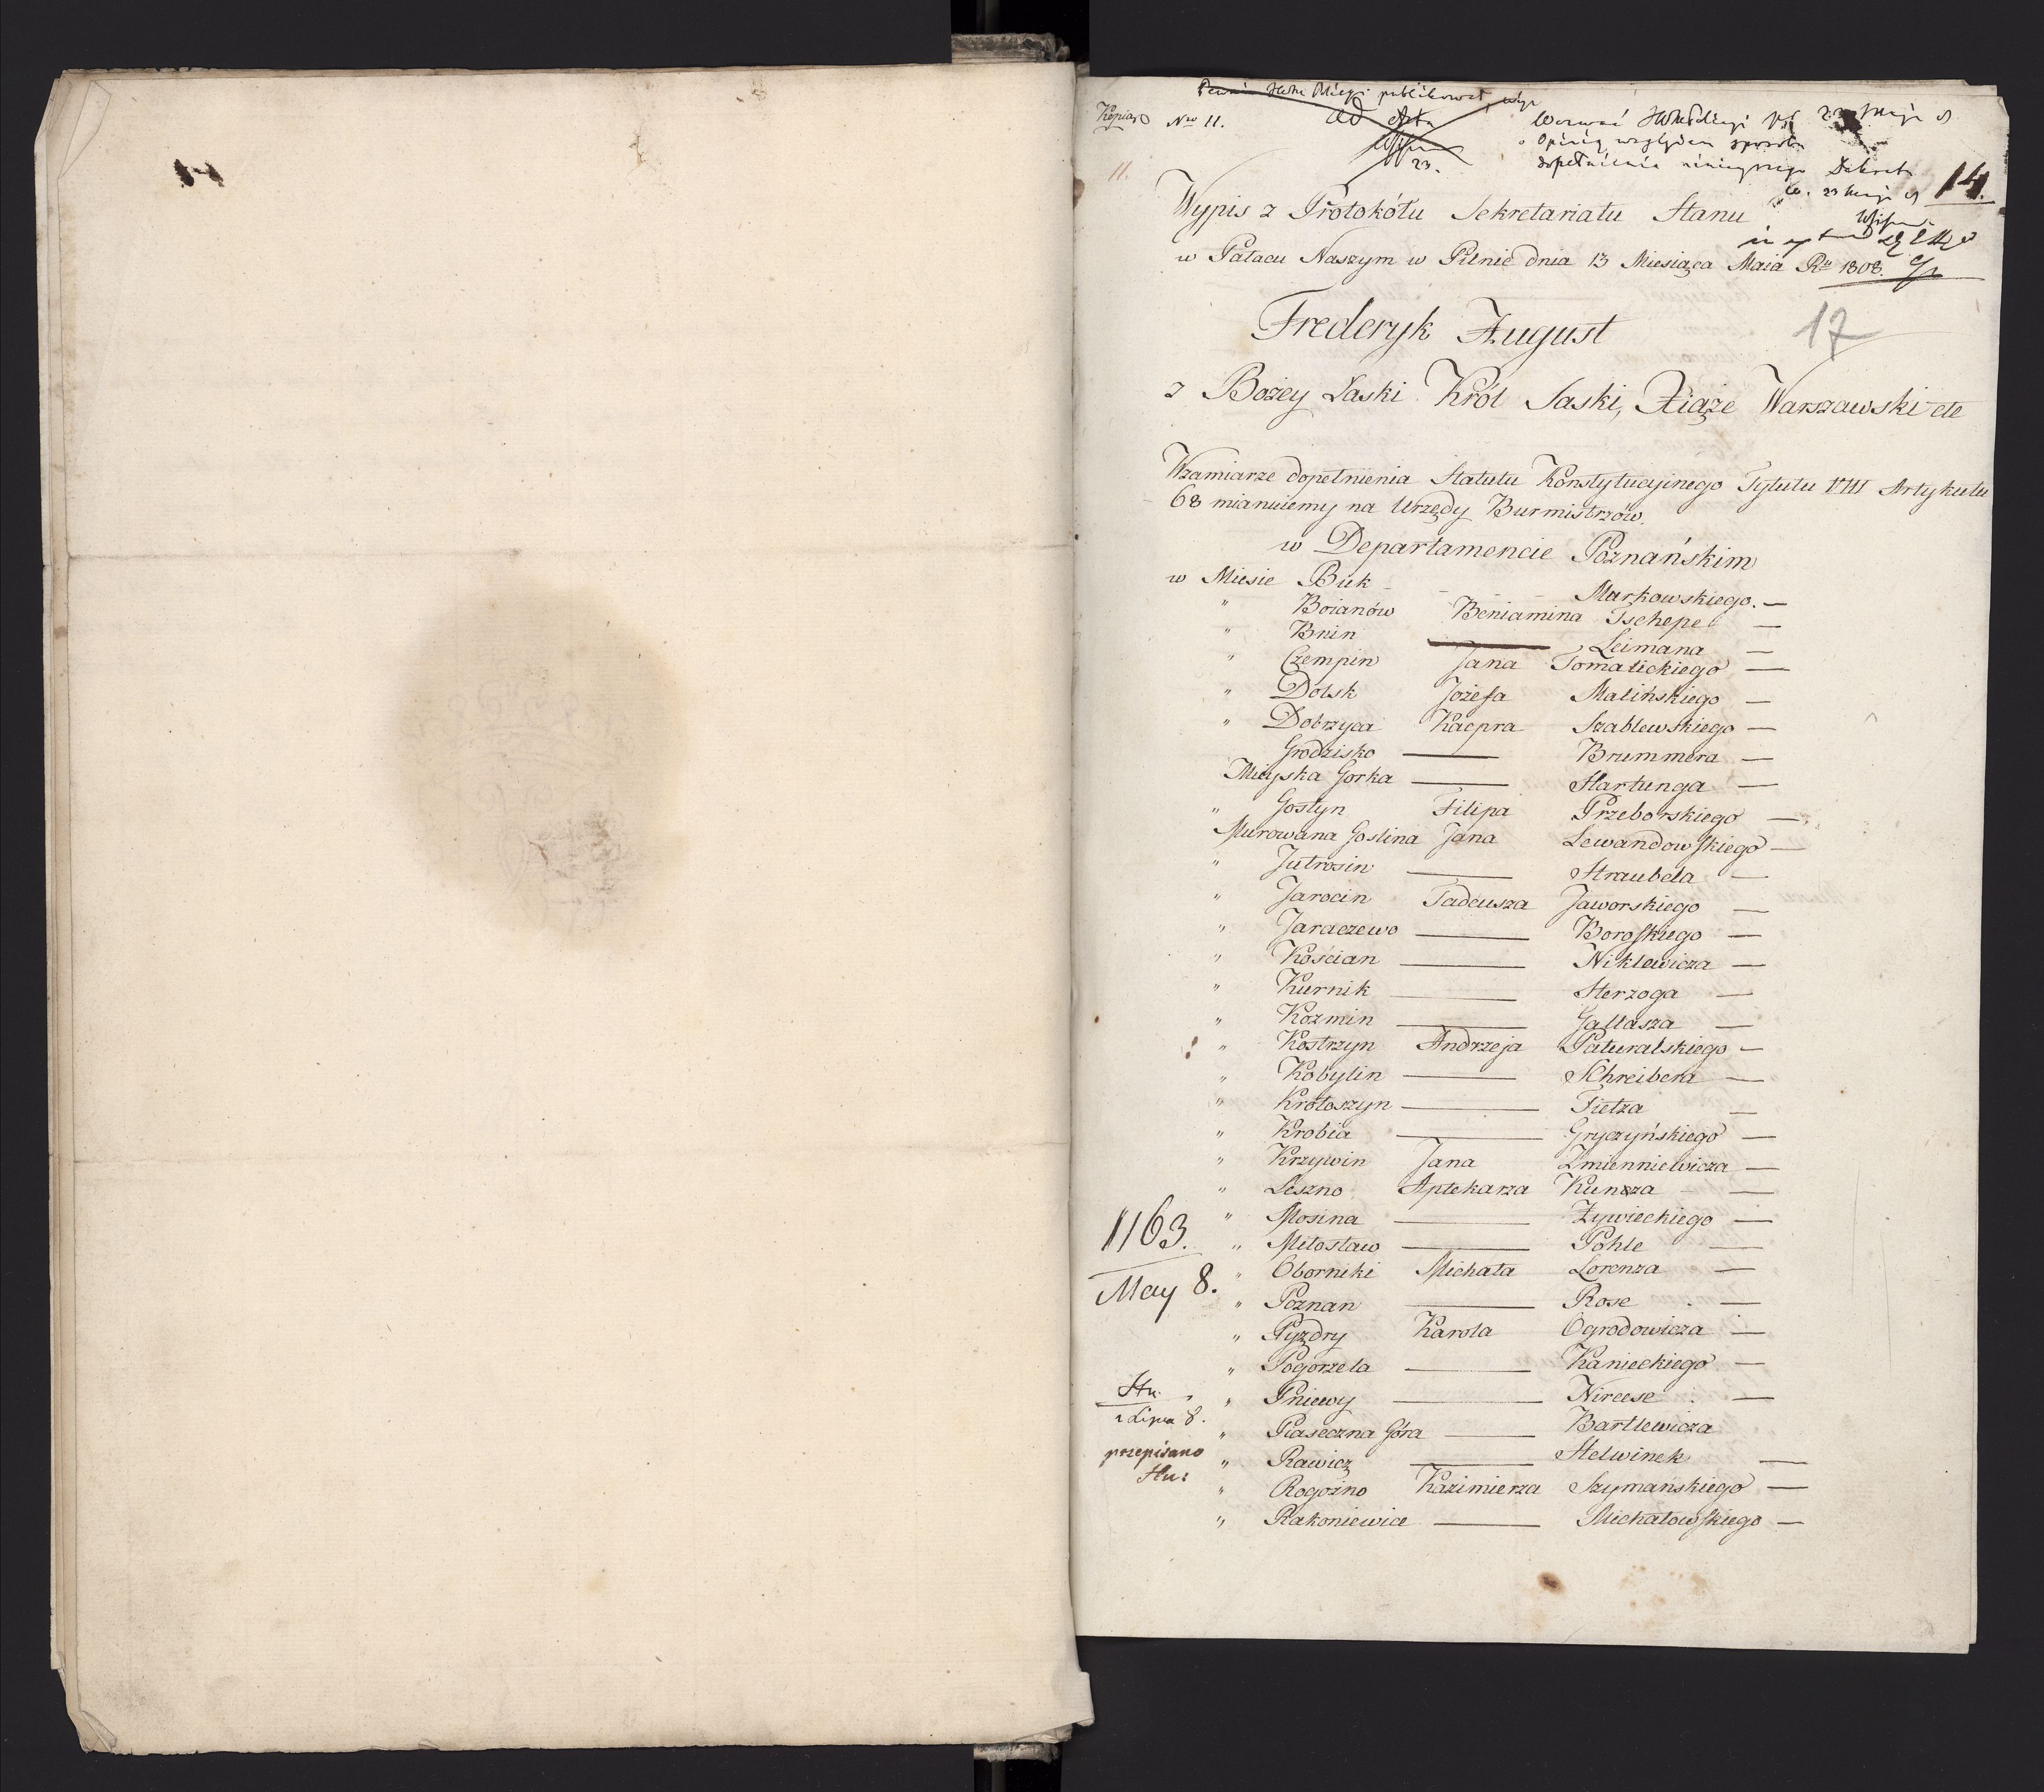 Kopiarz Nro 11.
ad Acta
23.
11.
14.
dopełnienia ninieyszego Dekretu
Wypis z Protokółu Sekretariatu Stanu
w Pałacu Naszym w Pilnie dnia 13 Miesiąca Maia Rku 1808.
17
Frederyk August
z Bożey Łaski Król Saski, Xiąże Warszawski etc
Wzamiarze dopełnienia Statutu Konstytucyjnego Tytułu VIII Artykułu
68 mianuiemy na Urzędy Burmistrzów.
w Departamencie Poznańskim
w Miesie Buk - - - Markowskiego. —
" Boianów Beniamina Tschepe —
" Bnin — Leimana —
" Czempin Jana Tomalickiego —
" Dolsk Józefa Malińskiego —
" Dobrzyca Kacpra Szablewskiego —
Grodzisko — Brummera —
Mieyska Gorka — Hartunga —
" Gostyn Filipa Przeborskiego —
Murowana Goslina Jana Lewandowskiego —
" Jutrosin — Straubela —
" Jarocin Tadeusza Jaworskiego —
" Jaraczewo — Boroskiego —
" Kościan — Niklewicza —
" Kurnik — Herzoga —
" Kozmin — Gallasza —
" Kostrzyn Andrzeja Paturalskiego —
" Kobylin — Schreibera —
" Krotoszyn — Tietza —
" Krobia — Gryczyńskiego —
" Krzywin Jana Zmienniewicza —
" Leszno Aptekarza Kunsza —
" Mosina — Żywieckiego —
1163.
" Miłosław — Pohle —
" Oborniki Michała Lorenza —
May 8.
" Poznan — Rose —
" Pyzdry Karola Ogrodowicza —
" Pogorzela — Kanieckiego —
" Pniewy — Nireese —
2 Lipca 8.
" Piaseczna Góra — Bartlewicza
przepisano
" Rawicz — Helwinek —
" Rogoźno Kazimierza Szymańskiego —
" Rakoniewice — Michałowskiego —